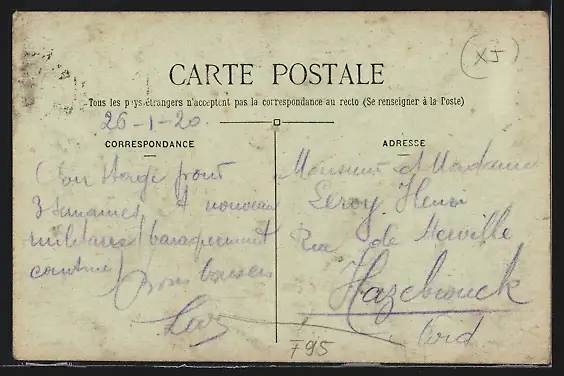 CARTE POSTALE
Tous les pays étrangers n'acceptent pas la correspondance au recto (Se renseigner à la Poste)
26-1-20.
CORRESPONDANCE
3 semaines et nouveau
militaires baraquement
vous baisers
ADRESSE
Monsieur et Madame
Leroy Henri
Rue de Merville
Hazebrouck
Nord
XJ
F95